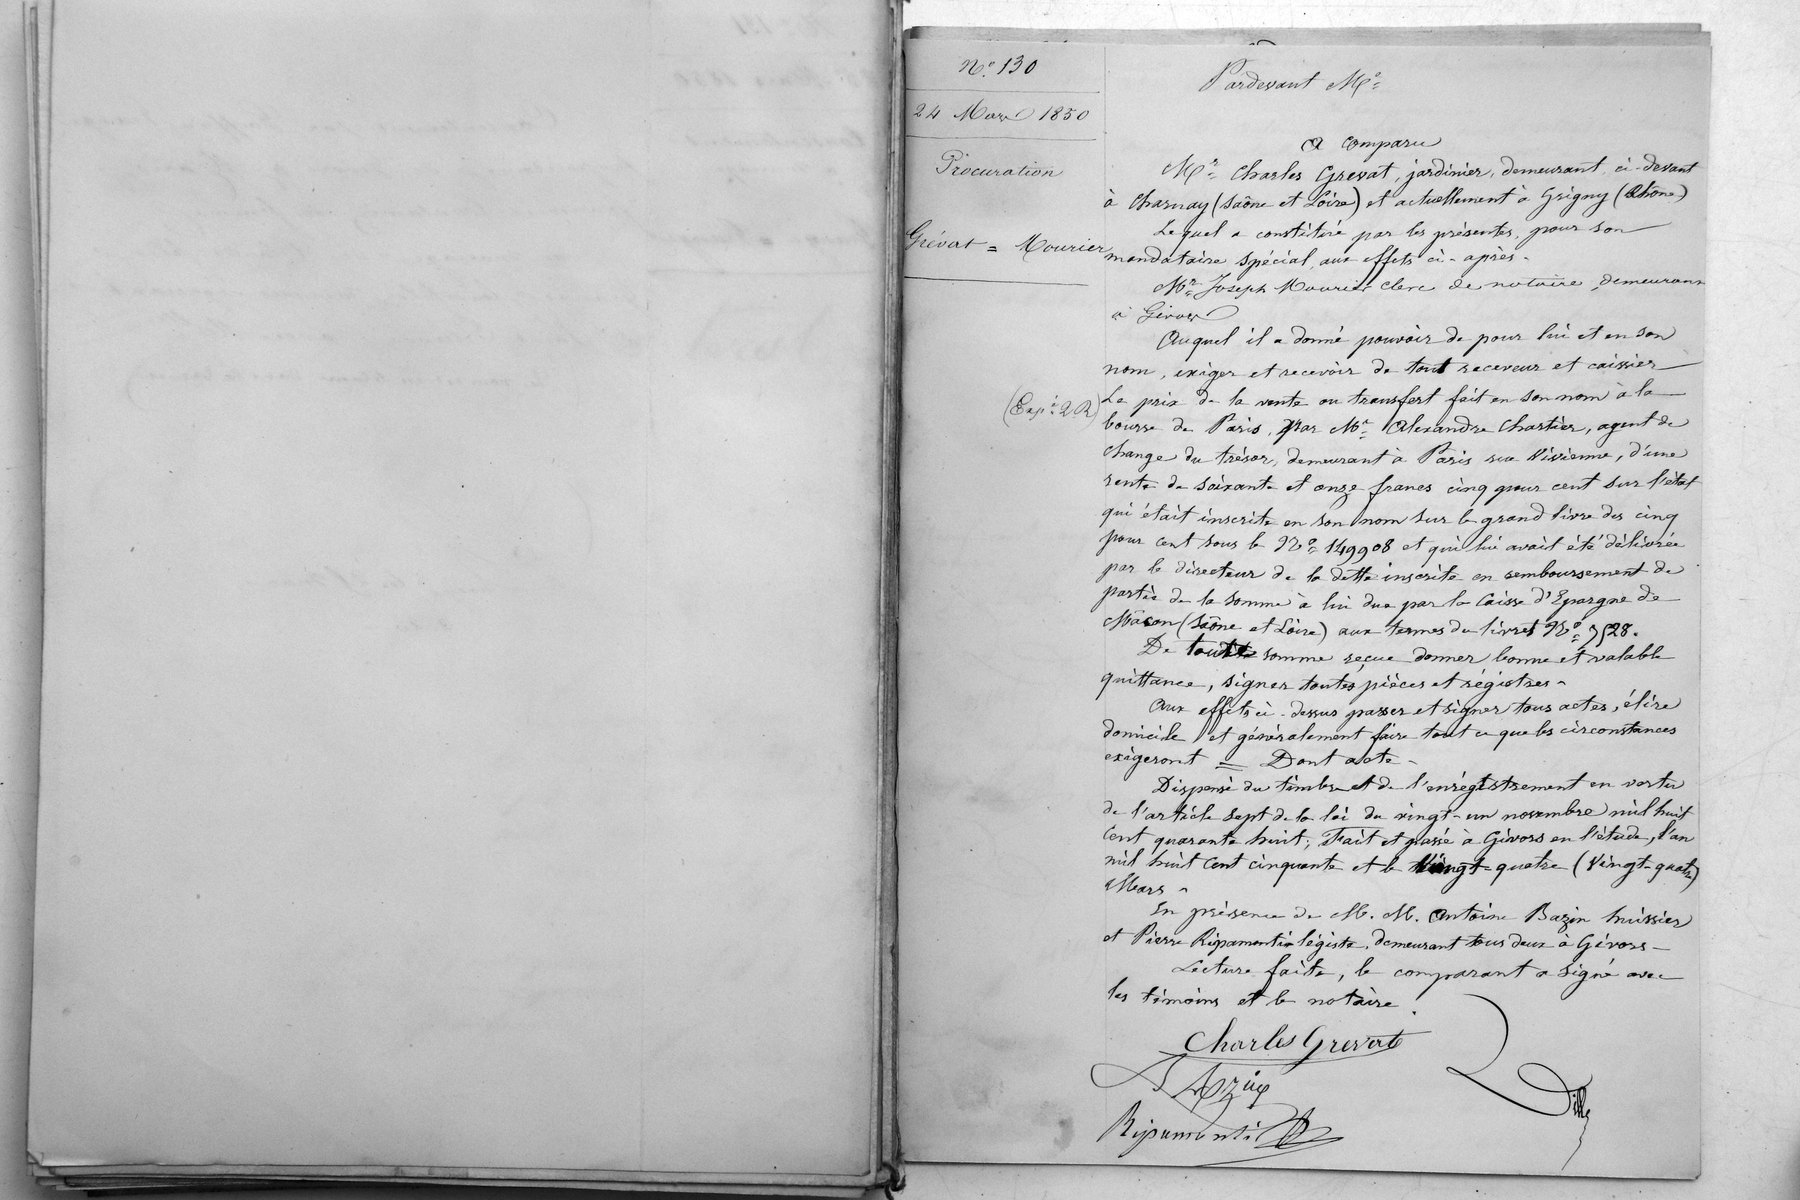 N.° 130
24 Mars 1850
Procuration
Grévat = Mourier
(Exp.é 2 R)
Pardevant M.e
A comparu
M.r Charles Grevat, jardinier, demeurant, ci-devant
à Charnay (Saône et Loire) et actuellement à Grigny (Rhône)
Lequel a constitué par les présentes, pour son
mandataire spécial, aux effets ci-après-
M.r Joseph Mourier clerc de notaire, demeurant
à Givors
Auquel il a donné pouvoir de pour lui et en son
nom, exiger et recevoir de tout receveur et caissier
Le prix de la vente ou transfert fait en son nom à la
bourse de Paris, par M.r Alexandre Chartier, agent de
change du trésor, demeurant à Paris rue Vivienne, d'une
rente de soixante et onze francs cinq pour cent sur l'état
qui était inscrite en son nom sur le grand livre des cinq
pour cent sous le N.° 149908 et qui lui avait été délivrée
par le directeur de la dette inscrite en remboursement de
partie de la somme à lui due par la Caisse d'Epargne de
Mâcon (Saône et Loire) aux termes du livret N.° 7528.
De toute somme reçue donner bonne et valable
quittance, signer toutes pièces et régistres-
Aux effets ci-dessus passer et signer tous actes, élire
domicile et généralement faire tout ce que les circonstances
exigeront = Dont acte-
Dispensé du timbre et de l'enrégistrement en vertu
de l'article sept de la loi du vingt-un novembre mil huit
cent quarante huit; Fait et passé à Givors en l'étude, l'an
mil huit cent cinquante et le vingt-quatre (Vingt-quatre)
Mars-
En présence de M. M. Antoine Bazin huissier
et Pierre Ripamonti légiste, demeurant tous deux à Givors-
Lecture faite, le comparant a signé avec
les témoins et le notaire.
Charles Grevat
Ripamonti